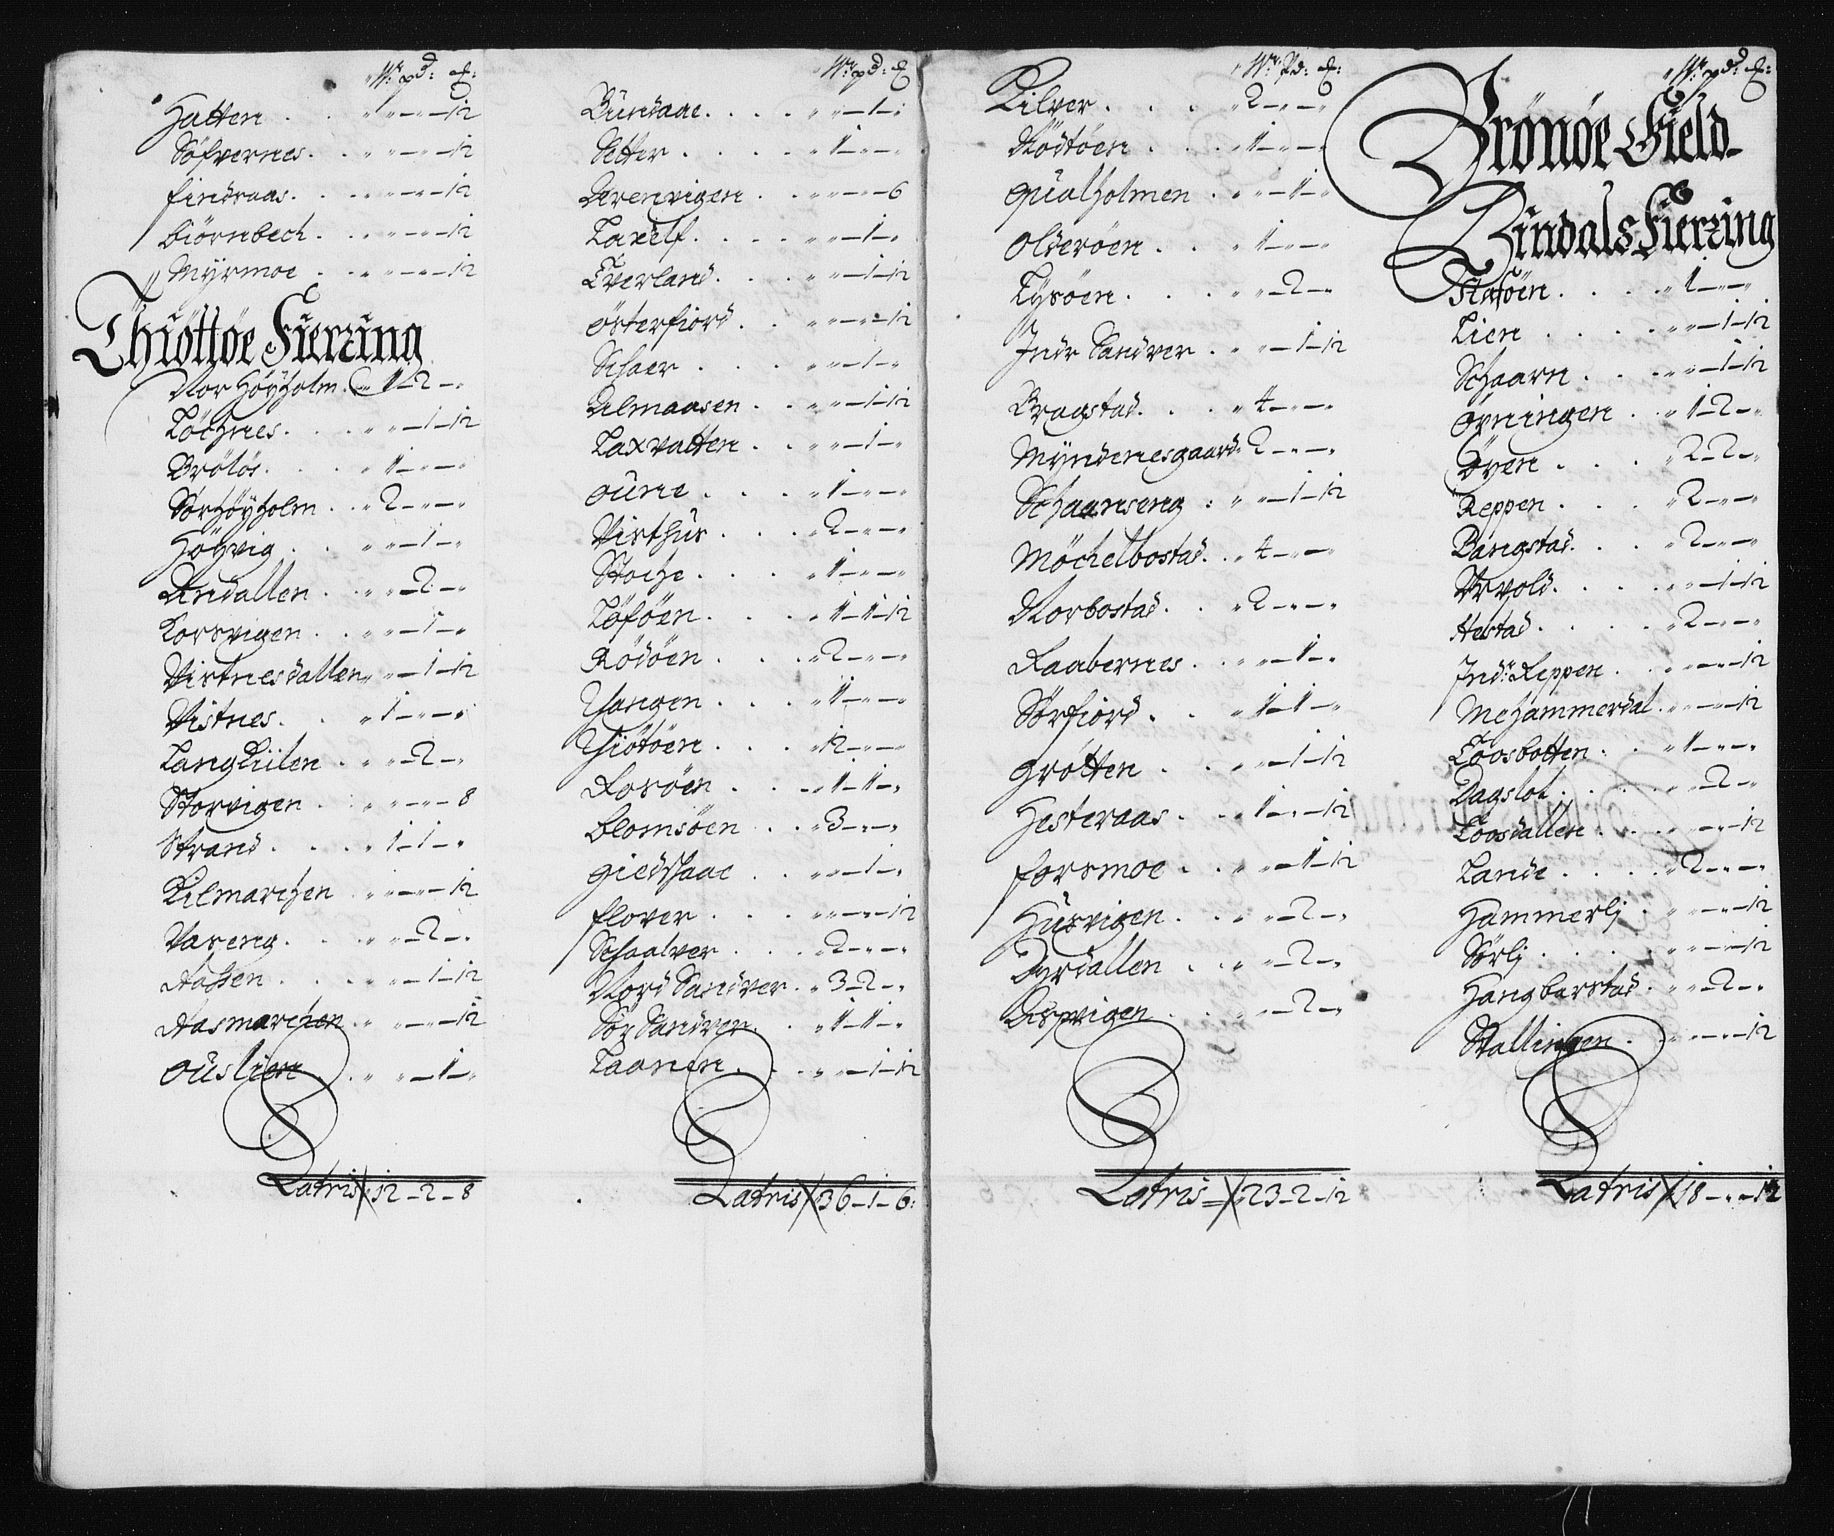 Wr: pd: ℔:
Hatten . . . „ „—„—12
Söfvernes. . . „ „—„—12
findraas. . . „ „—„—12
biörnbech. . . „ „—„—12
Myrmoe . . . „ „—„—12
Thiöttöe Fierring
Nor Höÿholm . „ 1—2—„
Töchnes. . . „ „—1—12
Brölös. . . „ 1—„—„
Sörhöÿholm . . „ 2—„—„
Höÿvig . . „ „—1—„
Andallen . . „ „—2—„
Korsvigen . . „ „—1—„
Vistnesdallen „ „—1—12
Vistnes. . . „ 1—„—„
Langkiilen . . „ „—2—„
Storvigen . . „ „—„—8
Strand . . . „ 1—1—„
Kilmarchen . . „ „—„—12
Vareng. . . „ „—2—„
Aassen . . . „ „—1—12
Aasmarchen . „ „—„—12
Ouslien . . „ „—1—„
Latris 12—2—8
Wr: pd: ℔
Bundaae. . . . „ „—1—„
Setter . . . . „ 1—„—„
Arenvigen . . „ „—„—6
Laxelf. . . . „ „—1—„
Tverland. . . „ „—1—12
Österfiord . . „ „—„—12
Schaer . . . „ „—1—„
Almaasen . . „ „—1—12
Laxvatten . . „ „—1—„
Oune . . . „ 1—„—„
Visthus . . . „ 2—„—„
Stoche . . . „ 1—„—„
Töföen . . . „ 1—1—12
Rödöen . . . „ 2—„—„
Thangen . . . „ 1—„—„
Thiötöen . . . „ 12—„—„
Rosöen . . . „ 1—1—„
blomsöen . . „ 3—„—„
giedshaae . . „ „—1—„
flover . . . „ „—„—12
Schaalver . . . „ 2—„—„
Nord Sandver . „ 3—2—„
Sör Sandver . . „ 1—1—„
Taanen . . . „ „—1—12
Latris 36—1—6:
Wr: Pd: ℔:
Kilver . . . „ 2—„—„
Rödtöen . . . „ 1—„—„
qualholmen . „ „—1—„
Olderöen . . „ 1—„—„
Tysöen . . . „ „—2—„
Indr Sandver . „ „—1—12
Bragstad. . . „ 4—„—„
Myndenesgaard: 2—„—„
Schaanseng : „ „—1—12
Möchelbostad. „ 4—„—„
Norbostad. . „ 2—„—„
Raabernes . . „ „—1—„
Sörfiord . . „ 1—1—„
grötten . . „ „—1—12
Hesteraas . . „ 1—„—12
forsmoe . . „ „—1—12
Husvigen . . „ „—2—„
Dyrdallen . . „ „—2—„
Aspvigen . . „ „—2—„
Latris — 23—2—12
Wr: pd: ℔:
Brönöe Field
Bindals Fierring
Flatöen . . . „ 1—„—„
Lien . . . . „ „—1—12
Schaarn . . . „ „—1—12
Örningen . . „ 1—2—„
Öyen . . . „ 2—2—„
Reppen . . . „ 2—„—„
Bangstad. . . „ 2—„—„
Arvold . . . „ „—1—12
Hestad . . . . „ 2—„—„
Indr: Reppen . . „ „—„—12
Mehammerdal. „ „—„—12
Toosbotten . . „ 1—„—„
Dagslot . . . „ „—2—„
Toosdallen . . „ „—„—12
Lande . . . . „ 2—„—„
Hammerlj . . „ „—„—12
Sörlj . . . . „ „—„—12
Hangbarstad . „ „—2—„
Vallingen . . „ „—„—12
Latris 18—„—12